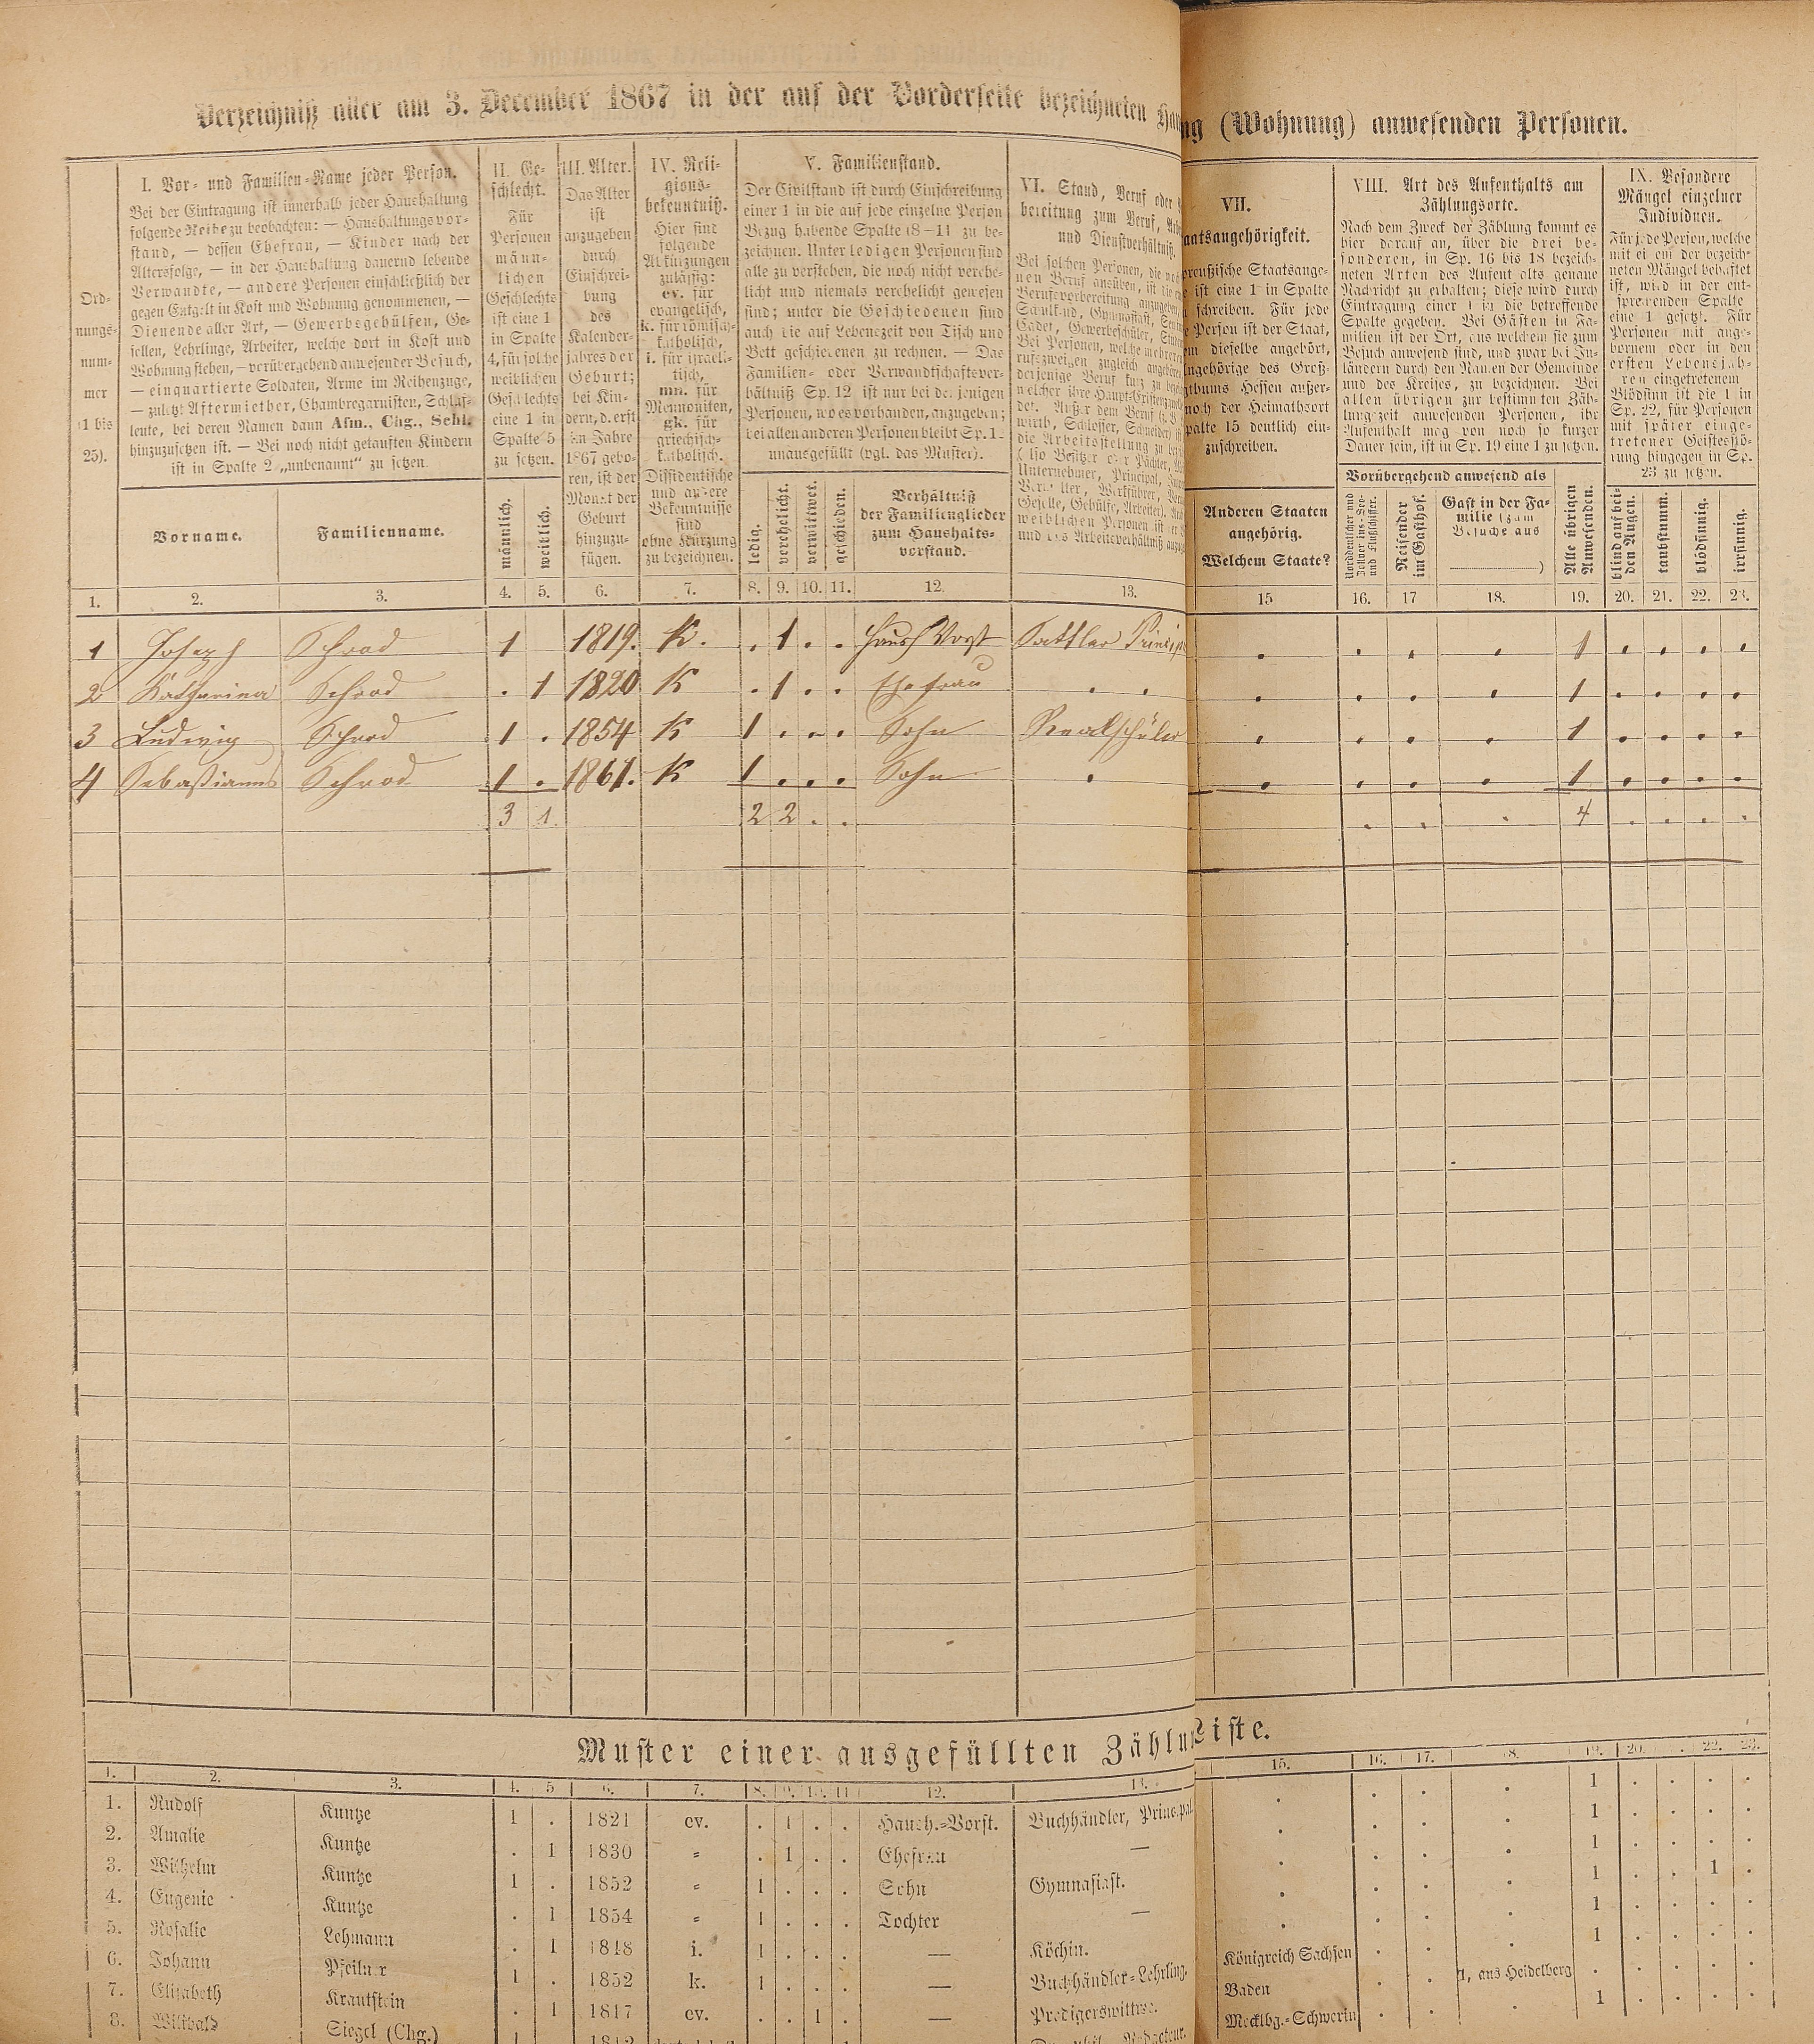 Verzeichniß aller am 3. December 1867 in der auf der Vorderseite bezeichneten
ng (Wohnung) anwesenden Personen.
Ord-
nungs-
num-
mer
(1 bis
25).
I. Vor- und Familien-Name jeder Person.
Bei der Eintragung ist innerhalb jeder Haushaltung
folgende Reihe zu beobachten: — Haushaltungsvor-
stand, — dessen Ehefrau, — Kinder nach der
Altersfolge, — in der Haushaltung dauernd lebende
Verwandte, — andere Personen einschließlich der
gegen Entgelt in Kost und Wohnung genommenen, —
Dienende aller Art, — Gewerbsgehülfen, Ge-
sellen, Lehrlinge, Arbeiter, welche dort in Kost und
Wohnung stehen, — vorübergehend anwesender Besuch,
— einquartierte Soldaten, Arme im Reihenzuge,
— zuletzt Aftermiether, Chambregarnisten, Schlaf-
leute, bei deren Namen dann Afm., Chg., Schl.
hinzuzusetzen ist. — Bei noch nicht getauften Kindern
ist in Spalte 2 „unbenannt“ zu setzen.
Vorname.
Familienname.
II. Ge-
schlecht.
Für
Personen
männ-
lichen
Geschlechts
ist eine 1
in Spalte
4, für solche
weiblichen
Geschlechts
eine 1 in
Spalte 5
zu setzen.
männlich.
weiblich.
III. Alter.
Das Alter
ist
anzugeben
durch
Einschrei-
bung
des
Kalender-
jahres der
Geburt;
bei Kin-
dern, d. erst
im Jahre
1867 gebo-
ren, ist der
Monat der
Geburt
hinzuzu-
fügen.
IV. Reli-
gions-
bekenntniß.
Hier sind
folgende
Abkürzungen
zulässig:
ev. für
evangelisch,
k. für römisch-
katholisch,
i. für israeli-
tisch,
mn. für
Mennoniten,
gk. für
griechisch-
katholisch.
Dissidentische
und andere
Bekenntnisse
sind
ohne Kürzung
zu bezeichnen.
V. Familienstand.
Der Civilstand ist durch Einschreibung
einer 1 in die auf jede einzelne Person
Bezug habende Spalte (8–11) zu be-
zeichnen. Unter ledigen Personen sind
alle zu verstehen, die noch nicht verehe-
licht und niemals verehelicht gewesen
sind; unter die Geschiedenen sind
auch die auf Lebenszeit von Tisch und
Bett geschiedenen zu rechnen. — Das
Familien- oder Verwandtschaftsver-
hältniß Sp. 12 ist nur bei denjenigen
Personen, wo es vorhanden, anzugeben;
bei allen anderen Personen bleibt Sp. 12
unausgefüllt (vgl. das Muster).
ledig.
verehelicht.
verwittwet.
geschieden.
Verhältniß
der Familienglieder
zum Haushalts-
vorstand.
VI. Stand, Beruf oder
bereitung zum Beruf,
und Dienstverhältniß.
VII.
aatsangehörigkeit.
preußische Staatsange-
ist eine 1 in Spalte
schreiben. Für jede
Person ist der Staat,
em dieselbe angehört,
ngehörige des Groß-
thums Hessen außer-
noch der Heimathsort
palte 15 deutlich ein-
zuschreiben.
Anderen Staaten
angehörig.
Welchem Staate?
VIII. Art des Aufenthalts am
Zählungsorte.
Nach dem Zweck der Zählung kommt es
hier darauf an, über die drei be-
sonderen, in Sp. 16 bis 18 bezeich-
neten Arten des Aufenthalts genaue
Nachricht zu erhalten; diese wird durch
Eintragung einer 1 in die betreffende
Spalte gegeben. Bei Gästen in Fa-
milien ist der Ort, aus welchem sie zum
Besuch anwesend sind, und zwar bei In-
ländern durch den Namen der Gemeinde
und des Kreises, zu bezeichnen. Bei
allen übrigen zur bestimmten Zäh-
lungszeit anwesenden Personen, ihr
Aufenthalt mag von noch so kurzer
Dauer sein, ist in Sp. 19 eine 1 zu setzen.
Vorübergehend anwesend als
Norddeutscher und
Zollvereins-See-
und Flußschiffer.
Reisender
im Gasthof.
Gast in der Fa-
milie (zum
Besuche aus
)
Alle übrigen
Anwesenden.
IX. Besondere
Mängel einzelner
Individuen.
Für jede Person, welche
mit einem der bezeich-
neten Mängel behaftet
ist, wird in der ent-
sprechenden Spalte
eine 1 gesetzt. Für
Personen mit ange-
bornem oder in den
ersten Lebensjah-
ren eingetretenem
Blödsinn ist die 1 in
Sp. 22, für Personen
mit später einge-
tretener Geistesstö-
rung hingegen in Sp.
23 zu setzen.
blind auf bei-
den Augen.
taubstumm.
blödsinnig.
irrsinnig.
1. 2. 3. 4. 5. 6. 7. 8. 9. 10. 11. 12. 13. 15 16. 17 18. 19. 20. 21. 22. 23.
1 Joseph Schrod 1 1819. K. . 1 . . Haush Vorst Sattler . . . . 1 . . . .
2 Katharina Schrod . 1 1820 K . 1 . . Ehefrau . . . . . . 1 . . . .
3 Ludwig Schrod 1 . 1854 K 1 . . . Sohn Realschüler . . . . 1 . . . .
4 Sebastianus Schrod 1 . 1861. K 1 . . . Sohn . . . . . 1 . . . .
3 1. 2 2 . . . . . 4 . . . .
Muster einer ausgefüllten Zählu
Liste.
1. 2. 3. 4. 5 6. 7. 8. 9. 10. 11 12. 13. 15. 16. 17. 18. 19. 20. 22. 23.
1. Rudolf Kuntze 1 . 1821 ev. . 1 . . Haush.-Vorst. Buchhändler, Principal . . . . 1 . . . .
2. Amalie Kuntze . 1 1830 „ . 1 . . Ehefrau — . . . . 1 . . . .
3. Wilhelm Kuntze 1 . 1852 „ 1 . . . Sohn Gymnasiast. . . . . 1 . . . .
4. Eugenie Kuntze . 1 1854 „ 1 . . . Tochter — . . . . 1 . . 1 .
5. Rosalie Lehmann . 1 1848 i. 1 . . . — Köchin. . . . . 1 . . . .
6. Johann Pfeilner 1 . 1852 k. 1 . . . — Buchhändler-Lehrling. Königreich Sachsen . . . 1 . . . .
7. Elisabeth Krautstein . 1 1817 ev. . . 1 . — Predigerswittwe. Baden . . 1, aus Heidelberg . . . . .
8. Wilibald Siegel (Chg.) 1 1812 Mecklbg.-Schwerin . . . 1 . . . .